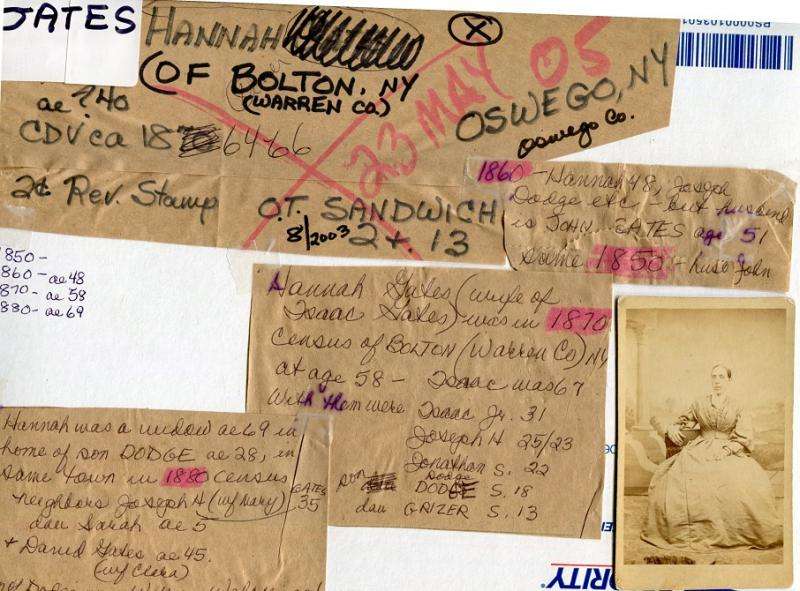 GATES
HANNAH
(OF BOLTON, NY
(WARREN CO.)
ae 40
CDV ca 18 6466
2¢ Rev. Stamp
O.T. SANDWICH
8/2003 2+. 13
X
23 MAY 05
OSWEGO, NY
Oswego Co.
PS0000103601
1860 - Hannah 48, Joseph
Dodge etc - but husband
is JOHN GATES age 51
Same 1850 + husb John
1850-
1860 - ae 48
1870 - ae 58
1880 - ae 69
Hannah Gates (wife of
Isaac Gates) - was in 1870
Census of BOLTON (Warren Co) NY
at age 58 - Isaac was 67
With them were Isaac Jr. 31
Joseph H 25/23
Jonathan S. 22
son Dodge
DODGE S. 18
dau GRIZER S. 13
Hannah was a widow ae 69 in
home of son DODGE ae 28, in
same town in 1880 census
neighbors Joseph H (wf Mary) GATES 35
dau Sarah ae 5
+ David Gates ae 45.
(wf Clara)
RITY